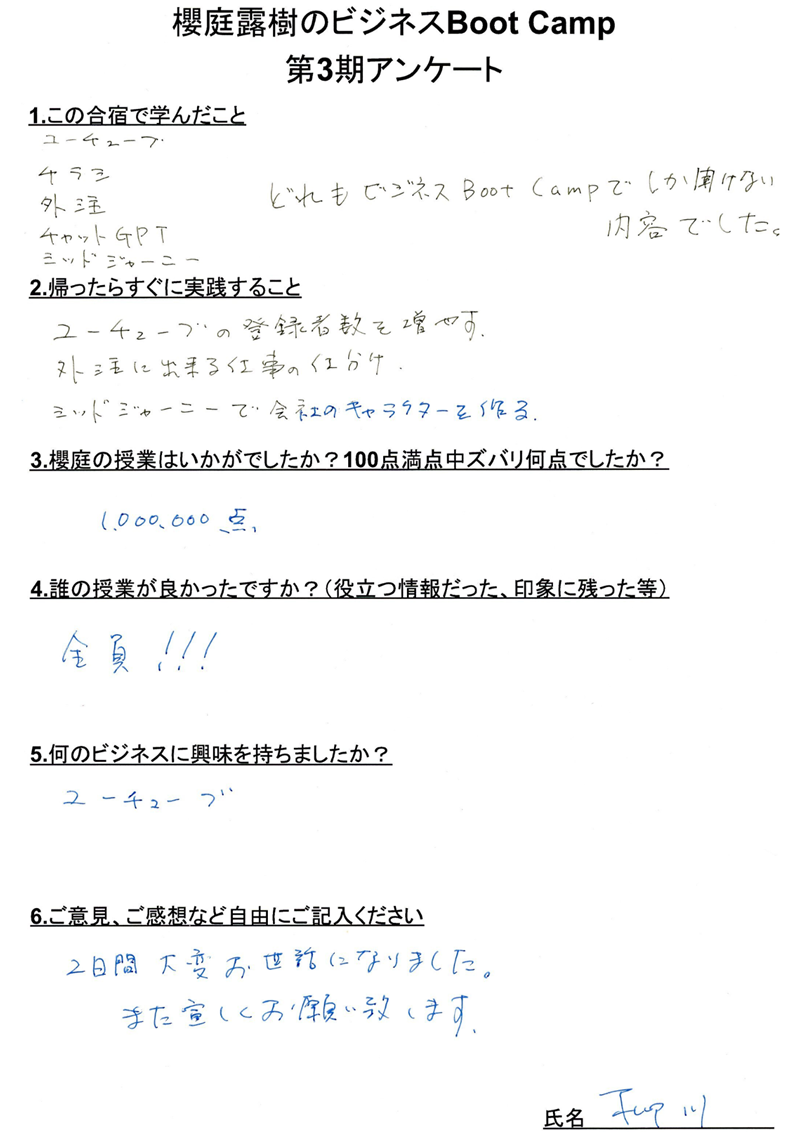 櫻庭露樹のビジネスBoot Camp
第3期アンケート
1.この合宿で学んだこと
ユーチューブ
チラシ
外注
チャットGPT
ミッドジャーニー
どれもビジネスBoot Campでしか聞けない
内容でした。
2.帰ったらすぐに実践すること
ユーチューブの登録者数を増やす.
外注に出来る仕事の仕分け.
ミッドジャーニーで会社のキャラクターを作る.
3.櫻庭の授業はいかがでしたか？100点満点中ズバリ何点でしたか？
1,000,000点、
4.誰の授業が良かったですか？（役立つ情報だった、印象に残った等）
全員!!!
5.何のビジネスに興味を持ちましたか？
ユーチューブ
6.ご意見、ご感想など自由にご記入ください
2日間大変お世話になりました。
また宜しくお願い致します.
氏名 川